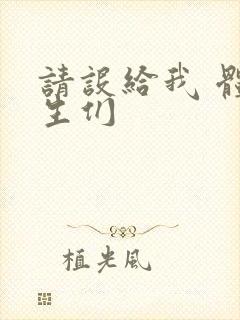 請設給我 體
生们
植光風